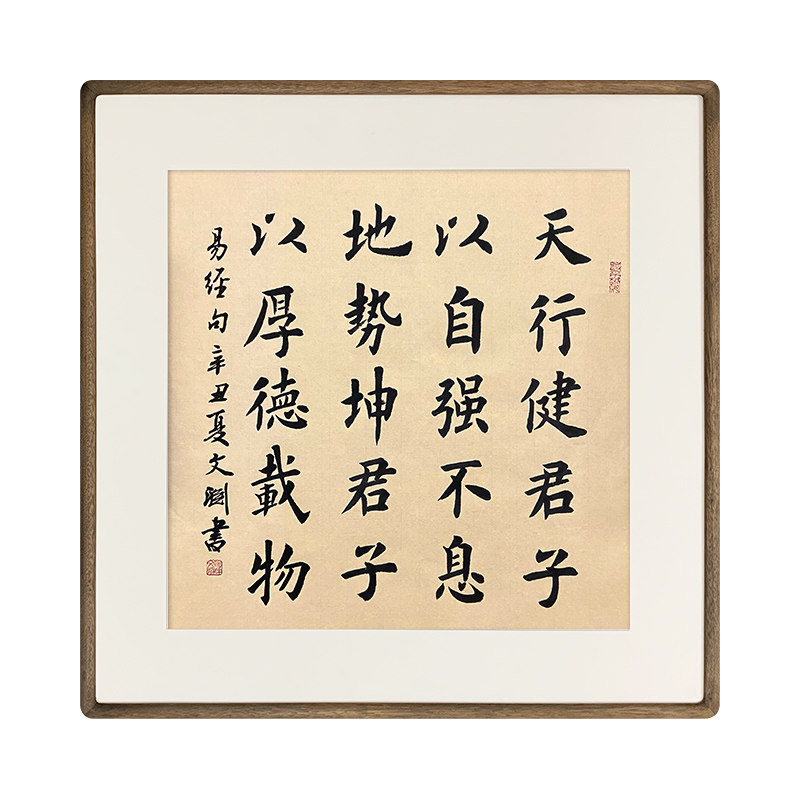 天行健君子
以自强不息
地势坤君子
以厚德載物
易经句辛丑夏文渊書